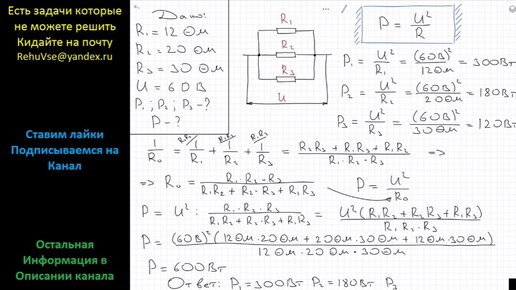 Есть задачи которые
не можете решить
Кидайте на почту
RehuVse@yandex.ru
Ставим лайки
Подписываемся на
Канал
Остальная
Информация в
Описании канала
Дано:
R₁ = 12 Ом
R₂ = 20 Ом
R₃ = 30 Ом
U = 60 В
P₁; P₂; P₃ - ?
P - ?
R₁
R₂
R₃
U
P = U²/R
P₁ = U²/R₁ = (60В)²/12Ом = 300Вт
P₂ = U²/R₂ = (60В)²/20Ом = 180Вт
P₃ = U²/R₃ = (60В)²/30Ом = 120Вт
1/R₀ = 1/R₁ + 1/R₂ + 1/R₃ = (R₂R₃ + R₁R₃ + R₁R₂)/(R₁·R₂·R₃) =>
=> R₀ = (R₁·R₂·R₃)/(R₁R₂ + R₂·R₃ + R₁R₃) P = U²/R₀
P = U² : (R₁·R₂·R₃)/(R₁R₂ + R₂R₃ + R₁R₃) = U²(R₁R₂ + R₂R₃ + R₁R₃)/(R₁R₂R₃)
P = (60В)²(12Ом·20Ом + 20Ом·30Ом + 12Ом·30Ом)/(12Ом·20Ом·30Ом)
P = 600Вт
Ответ: P₁ = 300Вт P₂ = 180Вт P₃